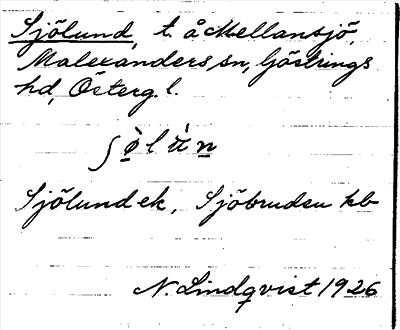 Sjölund, t. å Mellansjö,
Malexanders sn, Göstrings
hd, Österg. l.
ʃø̀lùn
Sjölund ek, Sjöbruden kb
N. Lindqvist 1926